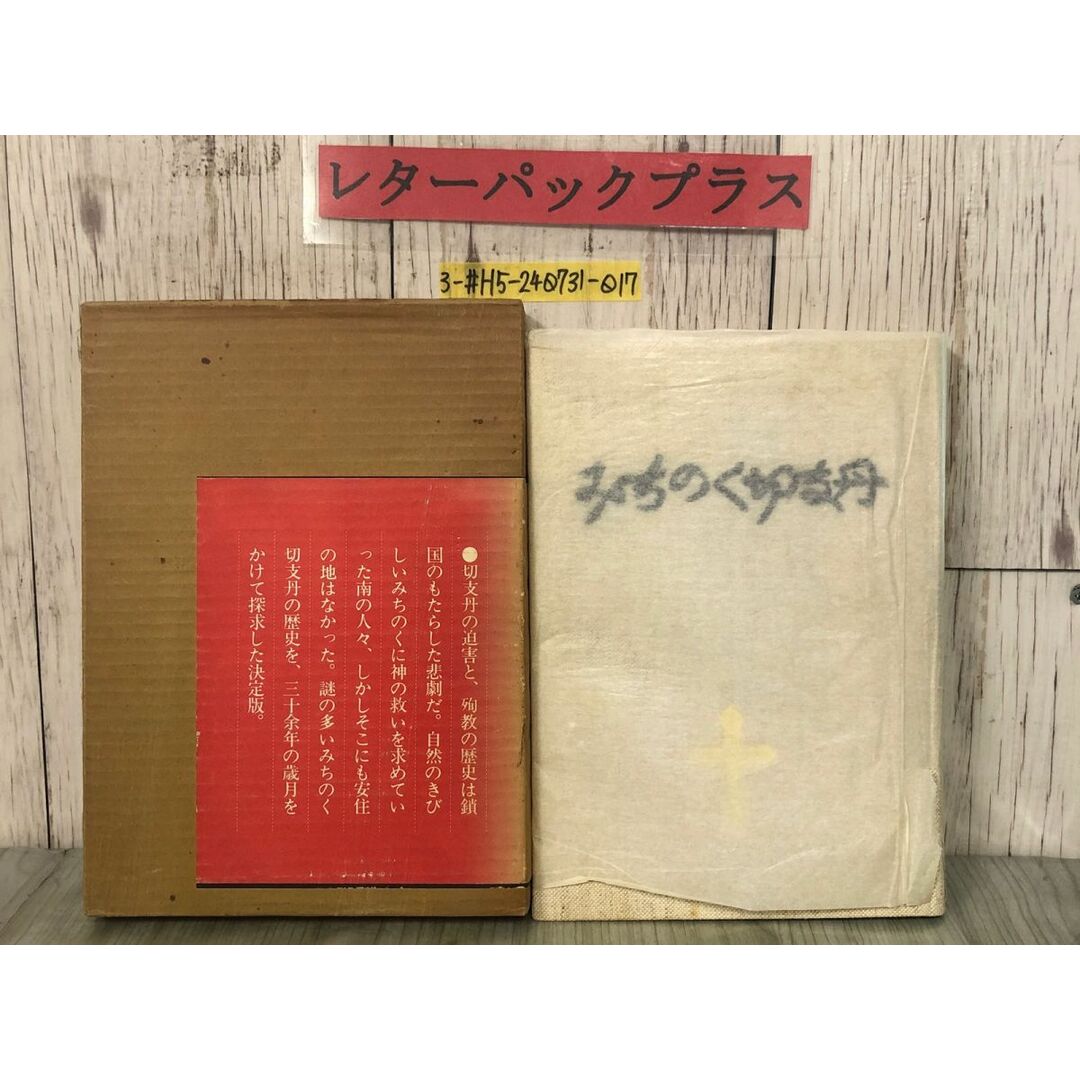 レターパックプラス
3-#H5-240731-017
●切支丹の迫害と、殉教の歴史は鎖
国のもたらした悲劇だ。自然のきび
しいみちのくに神の救いを求めてい
った南の人々、しかしそこにも安住
の地はなかった。謎の多いみちのく
切支丹の歴史を、三十余年の歳月を
かけて探求した決定版。
みちのく切支丹